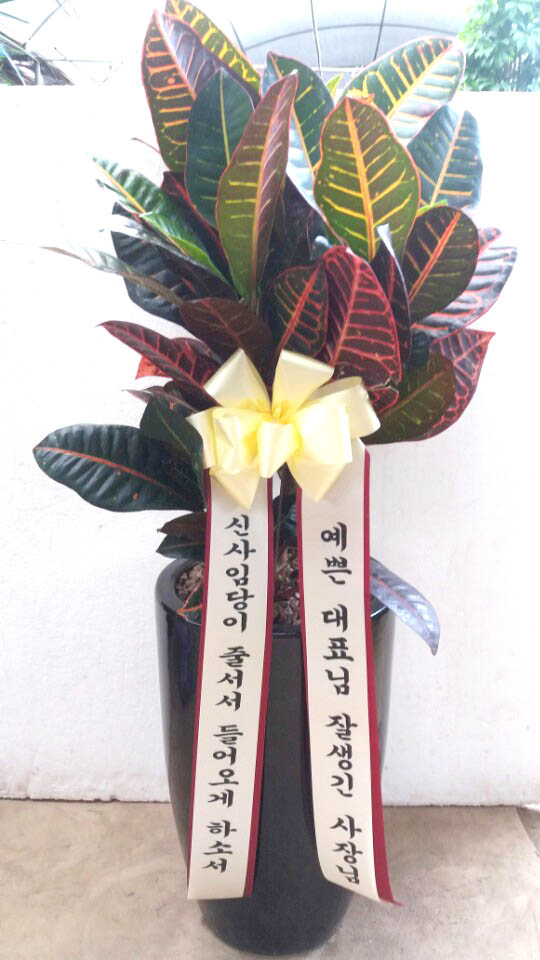 신사임당이 줄서서 들어오게 하소서
예쁜 대표님 잘생긴 사장님